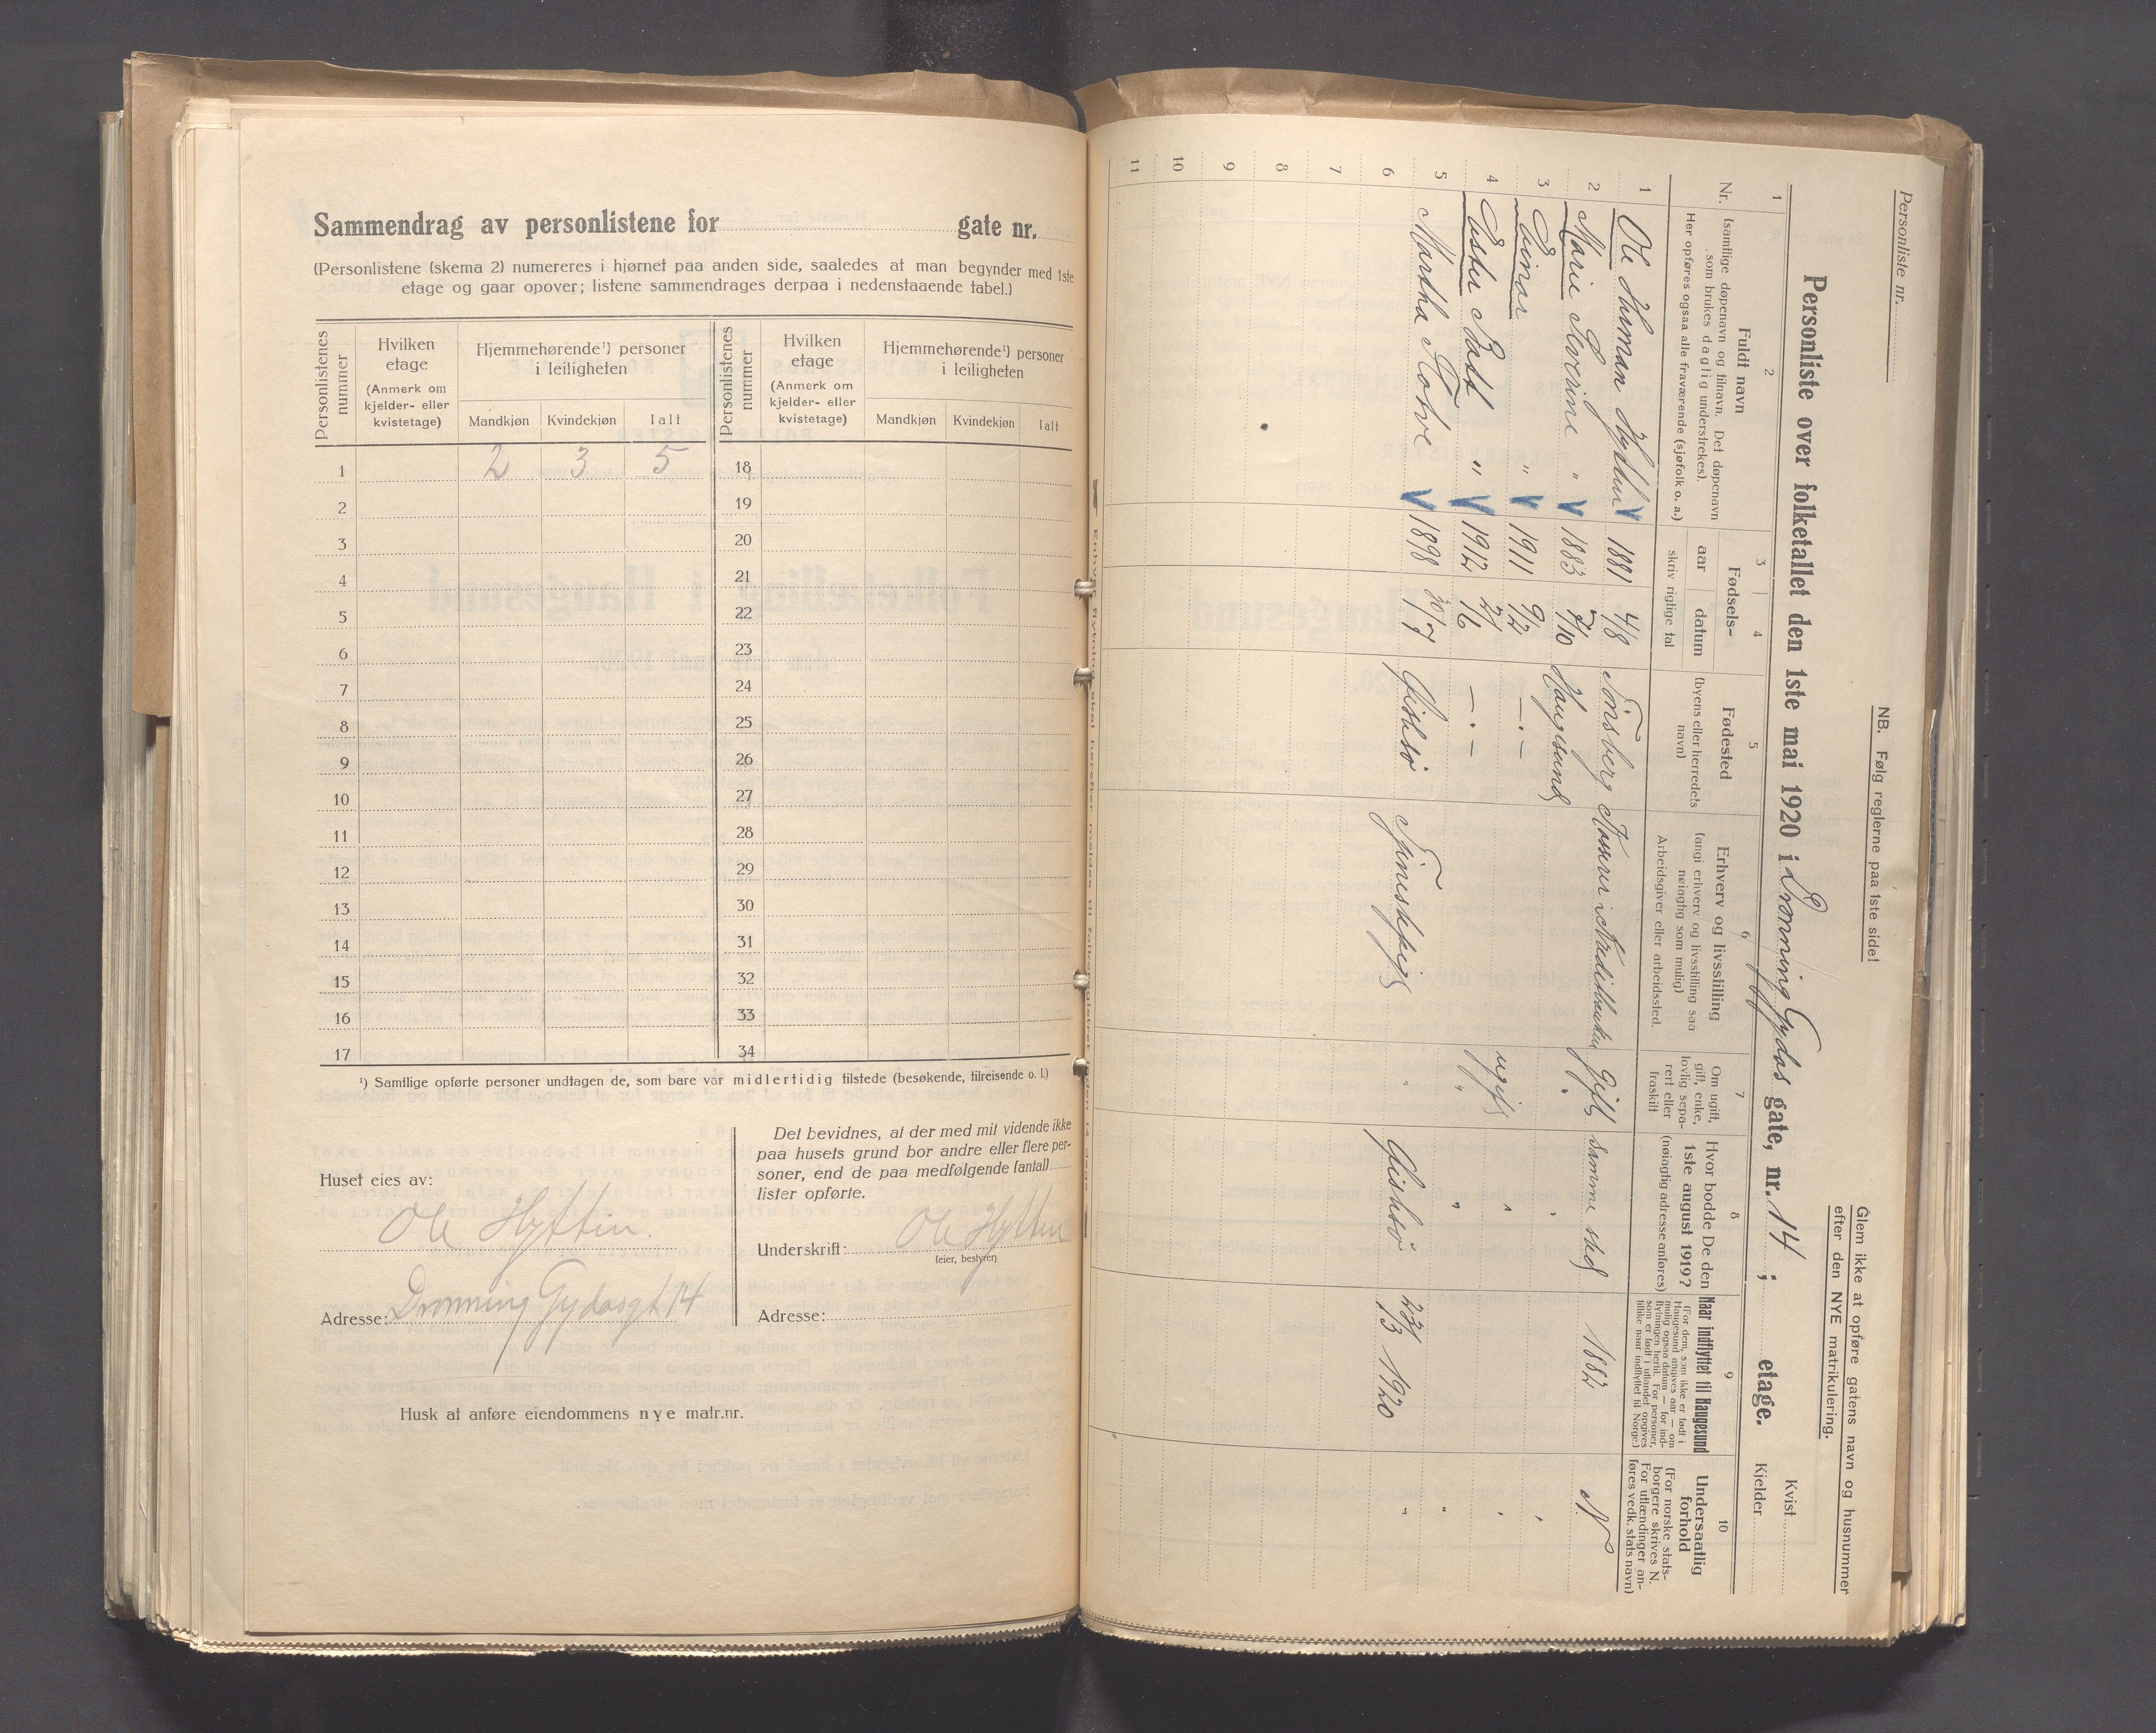 Sammendrag av personlistene for gate nr.
(Personlistene (skema 2) numereres i hjørnet paa anden side, saaledes at man begynder med 1ste
etage og gaar opover; listene sammendrages derpaa i nedenstaaende tabel.)
Personlistenes nummer
Hvilken etage
(Anmerk om kjelder- eller kvistetage)
Hjemmehørende¹) personer i leiligheten
Mandkjøn Kvindekjøn Ialt
Personlistenes nummer
Hvilken etage
(Anmerk om kjelder- eller kvistetage)
Hjemmehørende¹) personer i leiligheten
Mandkjøn Kvindekjøn Ialt
1 2 3 5 18
2 19
3 20
4 21
5 22
6 23
7 24
8 25
9 26
10 27
11 28
12 29
13 30
14 31
15 32
16 33
17 34
¹) Samtlige opførte personer undtagen de, som bare var midlertidig tilstede (besøkende, tilreisende o. l.)
Huset eies av:
Ole Hytten
Adresse: Dronning Gydasgt 14
Det bevidnes, at der med mit vidende ikke
paa husets grund bor andre eller flere per-
soner, end de paa medfølgende (antal)
lister opførte.
Underskrift: Ole Hytten
(eier, bestyrer)
Adresse:
Husk at anføre eiendommens nye matr.nr.
Personliste nr.
NB. Følg reglerne paa 1ste side!
Glem ikke at opføre gatens navn og husnummer
efter den NYE matrikulering.
Personliste over folketallet den 1ste mai 1920 i Dronning Gydas gate, nr. 14 ; etage.
Kvist
Kjelder
1 2 3 4 5 6 7 8 9 10
Nr.
Fuldt navn
(samtlige døpenavn og tilnavn. Det døpenavn
som brukes daglig understrekes).
Her opføres ogsaa alle fraværende (sjøfolk o. a.)
Fødsels-
aar datum
skriv rigtige tal
Fødested
(byens eller herredets
navn)
Erhverv og livsstilling
(angi erhverv og livsstilling saa
nøiagtig som mulig)
Arbeidsgiver eller arbeidssted.
Om ugift,
gift, enke,
lovlig sepa-
rert eller
fraskilt
Hvor bodde De den
1ste august 1919?
(nøiagtig adresse anføres)
Naar indflyttet til Haugesund
(For dem, som ikke er født i
Haugesund angives aar — om
mulig ogsaa datum — for ind-
flytningen hertil. For personer,
som er født i utlandet opgives
tillike naar indflyttet til Norge.)
Undersaatlig
forhold
(For norske stats-
borgere skrives N.
For utlændinger an-
føres vedk. stats navn)
1 Ole Herman Hytten 1881 4/8 Tönsberg Kasserer i gift samme sted 1882 N
2 Marie Severine " 1883 7/10 Haugesund " "
3 Einar " 1911 9/2 —.— ugift " "
4 Ester Batt " 1912 2/6 —.— " " "
5 Martha Totve 1898 30/7 Gishsö Tjenestepige " Gishsö 23/3 1920 "
6
7
8
9
10
11